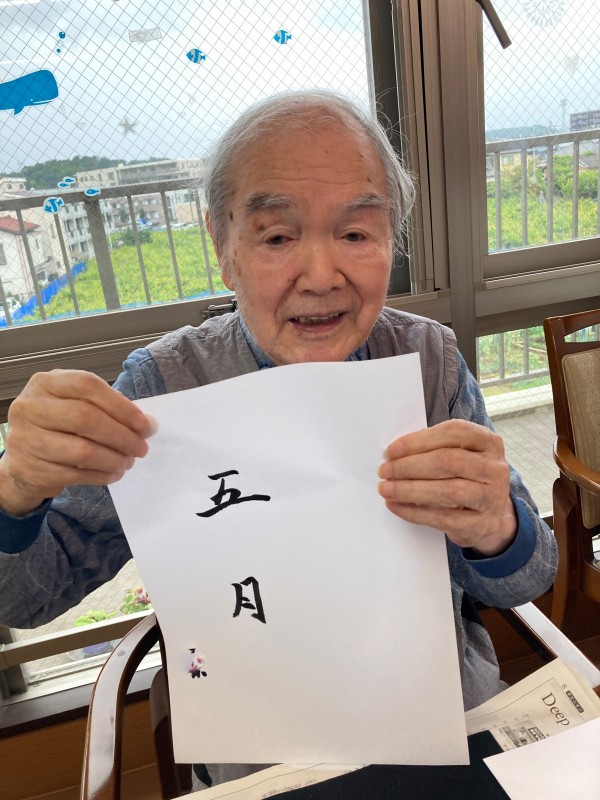 五
月
Deep